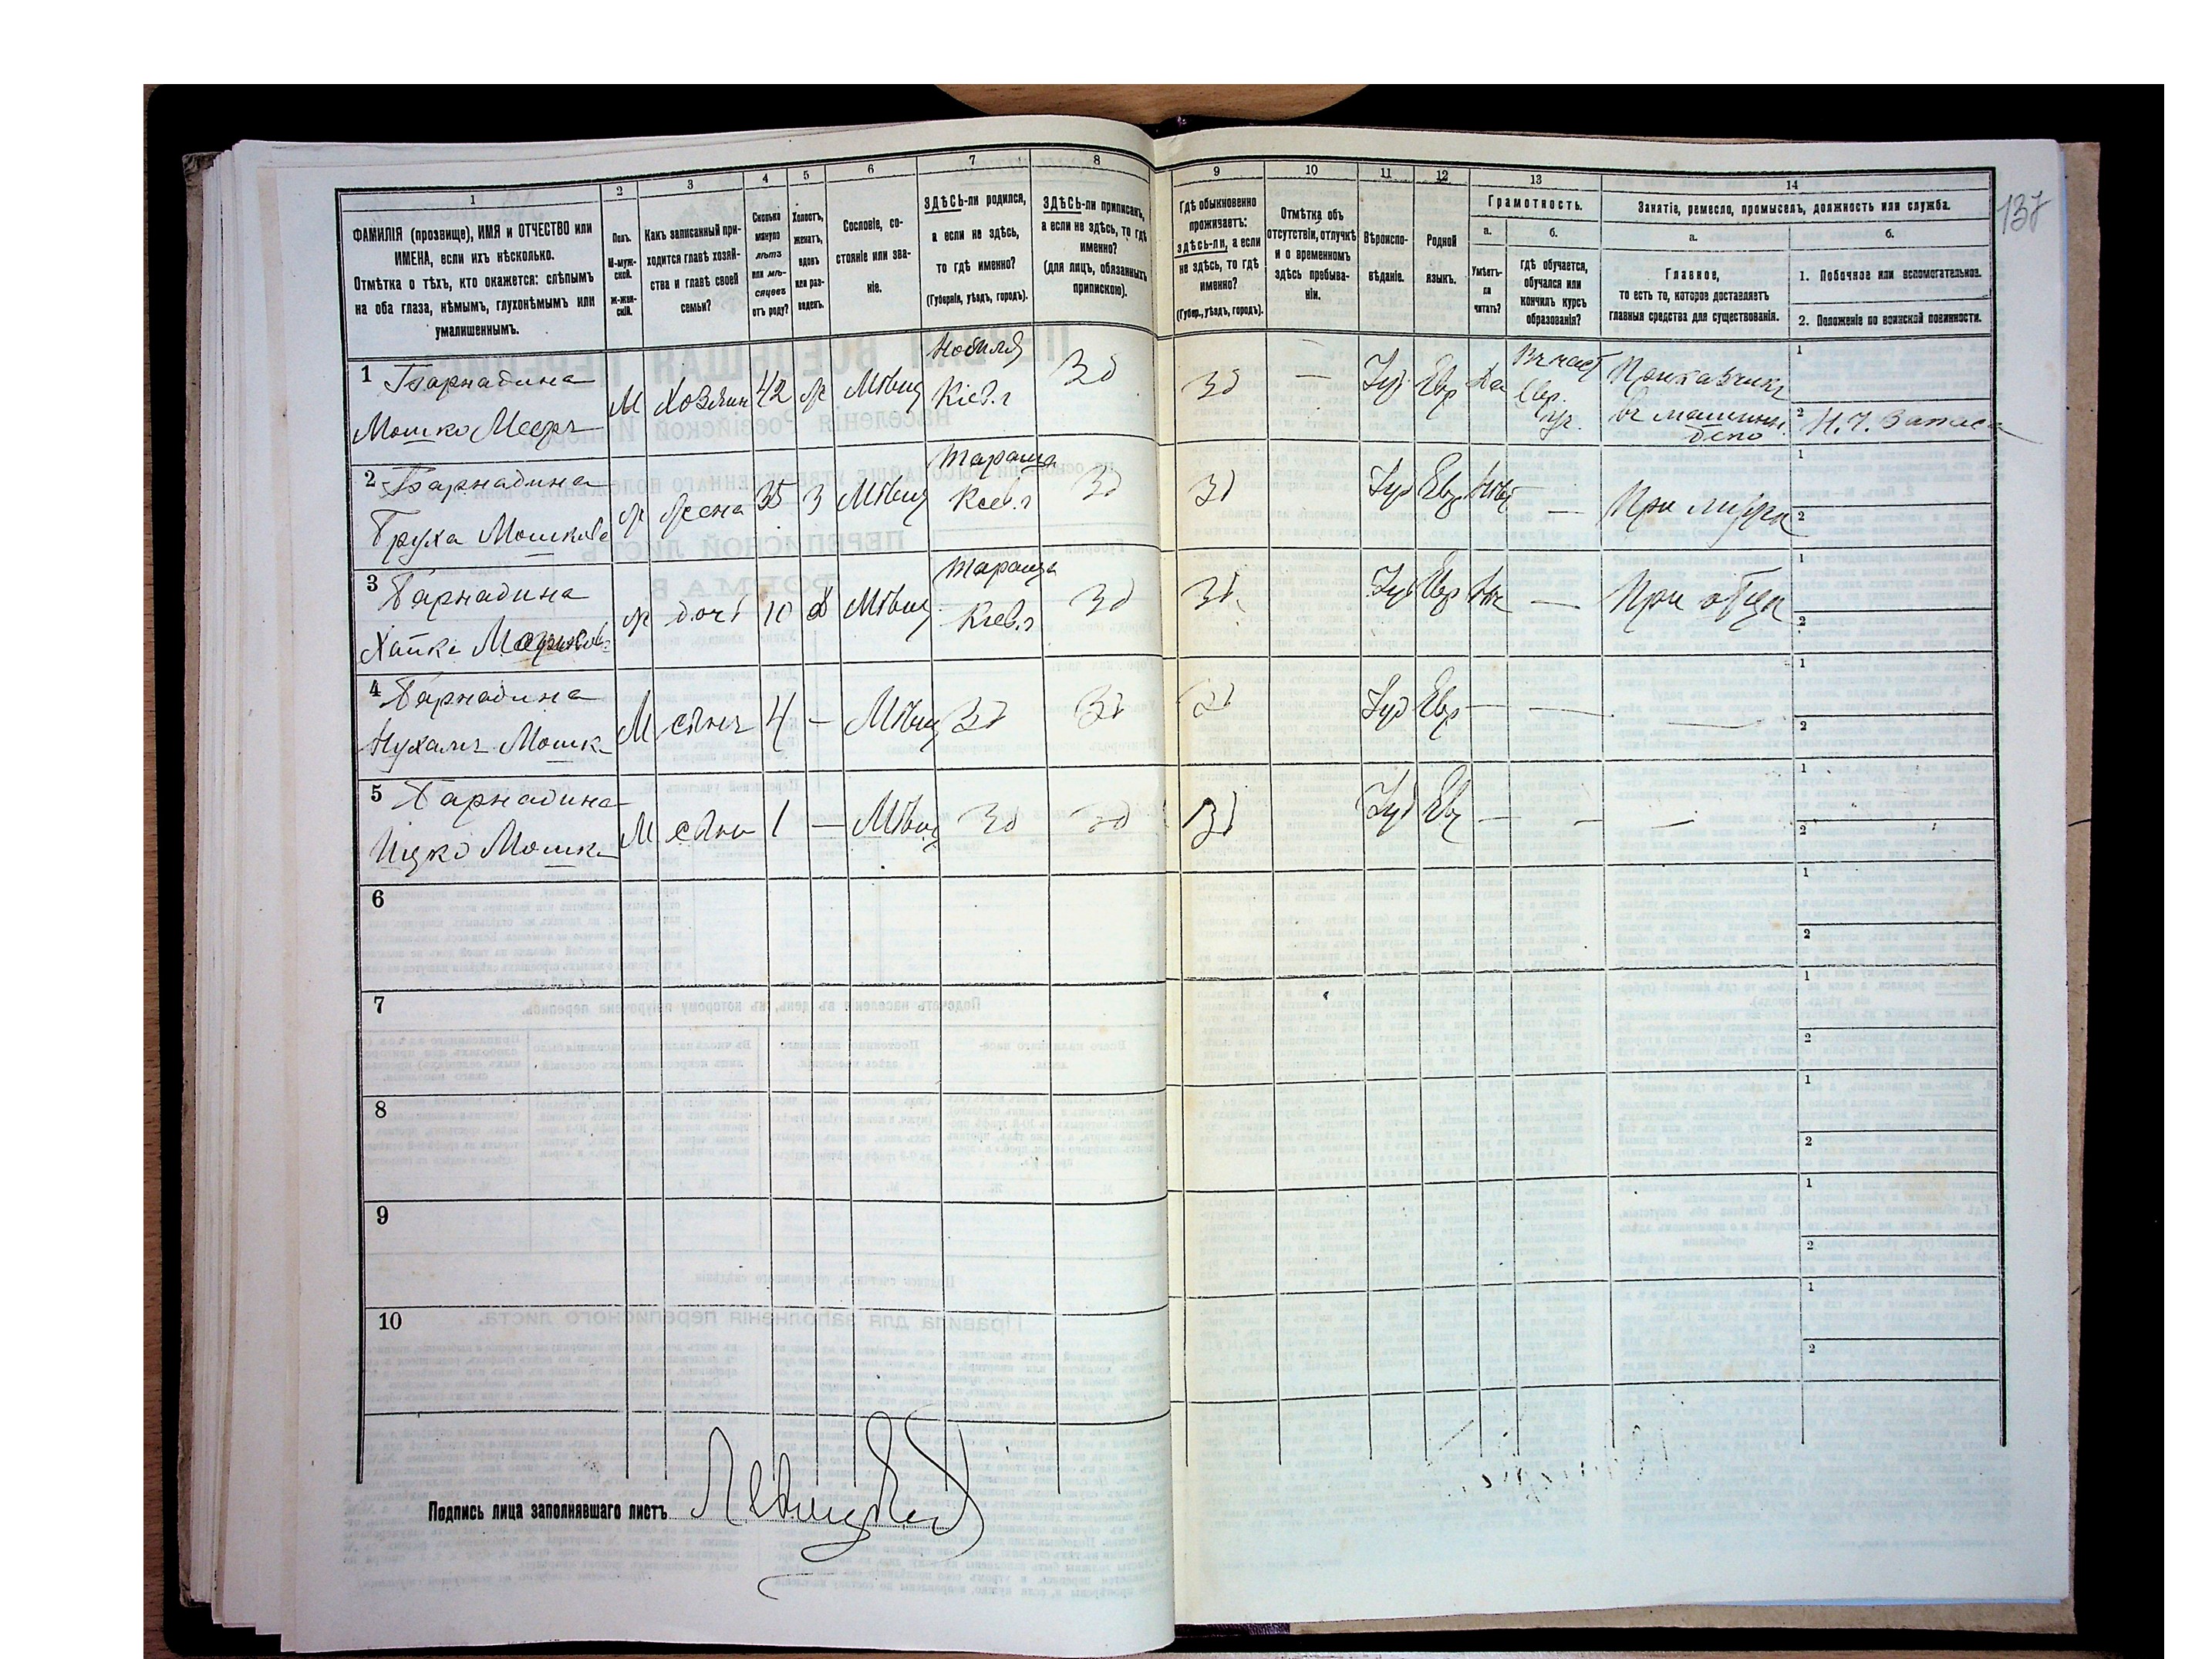 1
2
3
4
5
6
7
8
9
10
11
12
13
14
137
ФАМИЛІЯ (прозвище), ИМЯ и ОТЧЕСТВО или
ИМЕНА, если ихъ нѣсколько.
Отмѣтка о тѣхъ, кто окажется: слѣпымъ
на оба глаза, нѣмымъ, глухонѣмымъ или
умалишеннымъ.
Полъ.
М-муж-
ской.
ж-жен-
скій.
Какъ записанный при-
ходится главѣ хозяй-
ства и главѣ своей
семьи?
Сколько
минуло
лѣтъ
или мѣ-
сяцевъ
отъ роду?
Холостъ,
женатъ,
вдовъ
или раз-
веденъ.
Сословіе, со-
стояніе или зва-
ніе.
ЗДѢСЬ-ли родился,
а если не здѣсь,
то гдѣ именно?
(Губернія, уѣздъ, городъ).
ЗДѢСЬ-ли приписанъ,
а если не здѣсь, то гдѣ
именно?
(для лицъ, обязанныхъ
припискою).
Гдѣ обыкновенно
проживаетъ:
здѣсь-ли, а если
не здѣсь, то гдѣ
именно?
(Губер., уѣздъ, городъ).
Отмѣтка объ
отсутствіи, отлучкѣ
и о временномъ
здѣсь пребыва-
ніи.
Вѣроиспо-
вѣданіе.
Родной
языкъ.
Грамотность.
а.
Умѣетъ-
ли
читать?
б.
Гдѣ обучается,
обучался или
кончилъ курсъ
образованія?
Занятіе, ремесло, промыселъ, должность или служба.
а.
Главное,
то есть то, которое доставляетъ
главныя средства для существованія.
б.
1. Побочное или вспомогательное.
2. Положеніе по воинской повинности.
1 Барнадина
Мошко Мееръ
М Хозяинъ 42 ж Мѣщ
Кіев. г
Зд Зд — Іуд Евр да
Евр.
Приказчикъ
1
2
2 Барнадина
Груха Мошков
ж жена 35 З Мѣщ
Тараща
Кіев. г
Зд Зд Іуд Евр — —
При мужѣ
1
2
3 Барнадина
Хайка
ж дочь 10 Мѣщ
Тараща
Кіев. г
Зд Зд Іуд Евр —
При отцѣ
1
2
4 Барнадина
Нухимъ Мошк
М сынъ 4 — Мѣщ Зд Зд Зд Іуд Евр — — —
1
2
5 Барнадина
Ицко Мошк
М сынъ 1 — Мѣщ Зд Зд Зд Іуд Ев — — —
1
2
6
1
2
7
1
2
8
1
2
9
1
2
10
1
2
Подпись лица заполнявшаго листъ